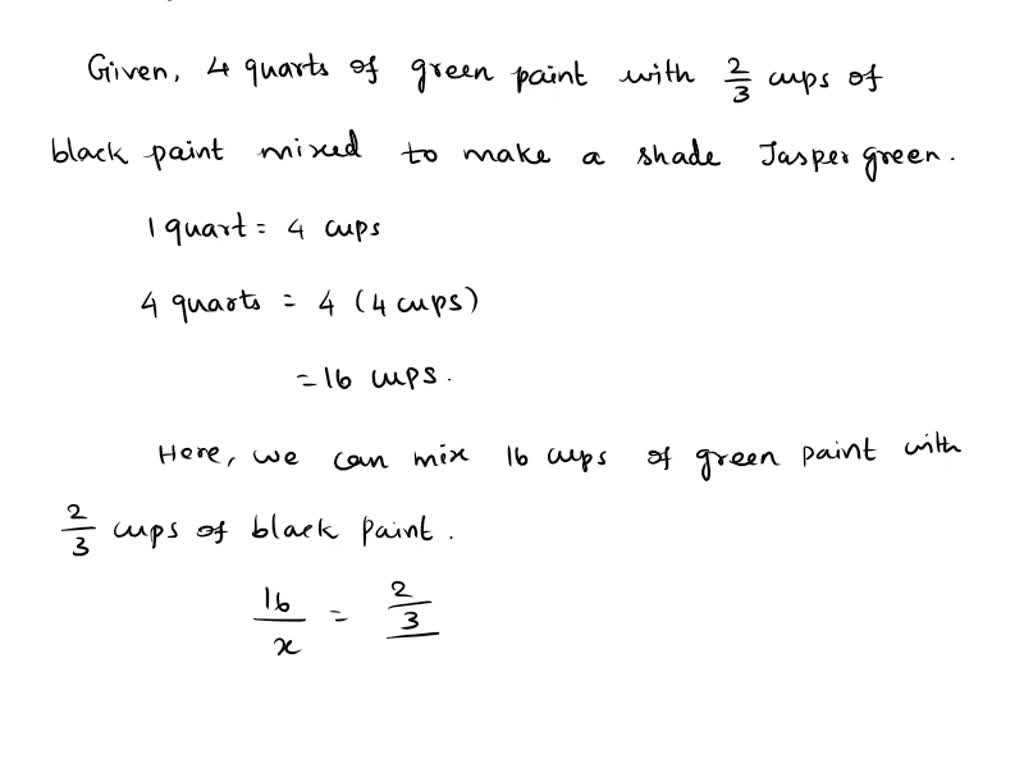 Given, 4 quarts of green paint with 2/3 cups of
black paint mixed to make a shade Jasper green.
1 quart = 4 cups
4 quarts = 4 (4 cups)
= 16 cups.
Here, we can mix 16 cups of green paint with
2/3 cups of black paint.
16/x = 2/3